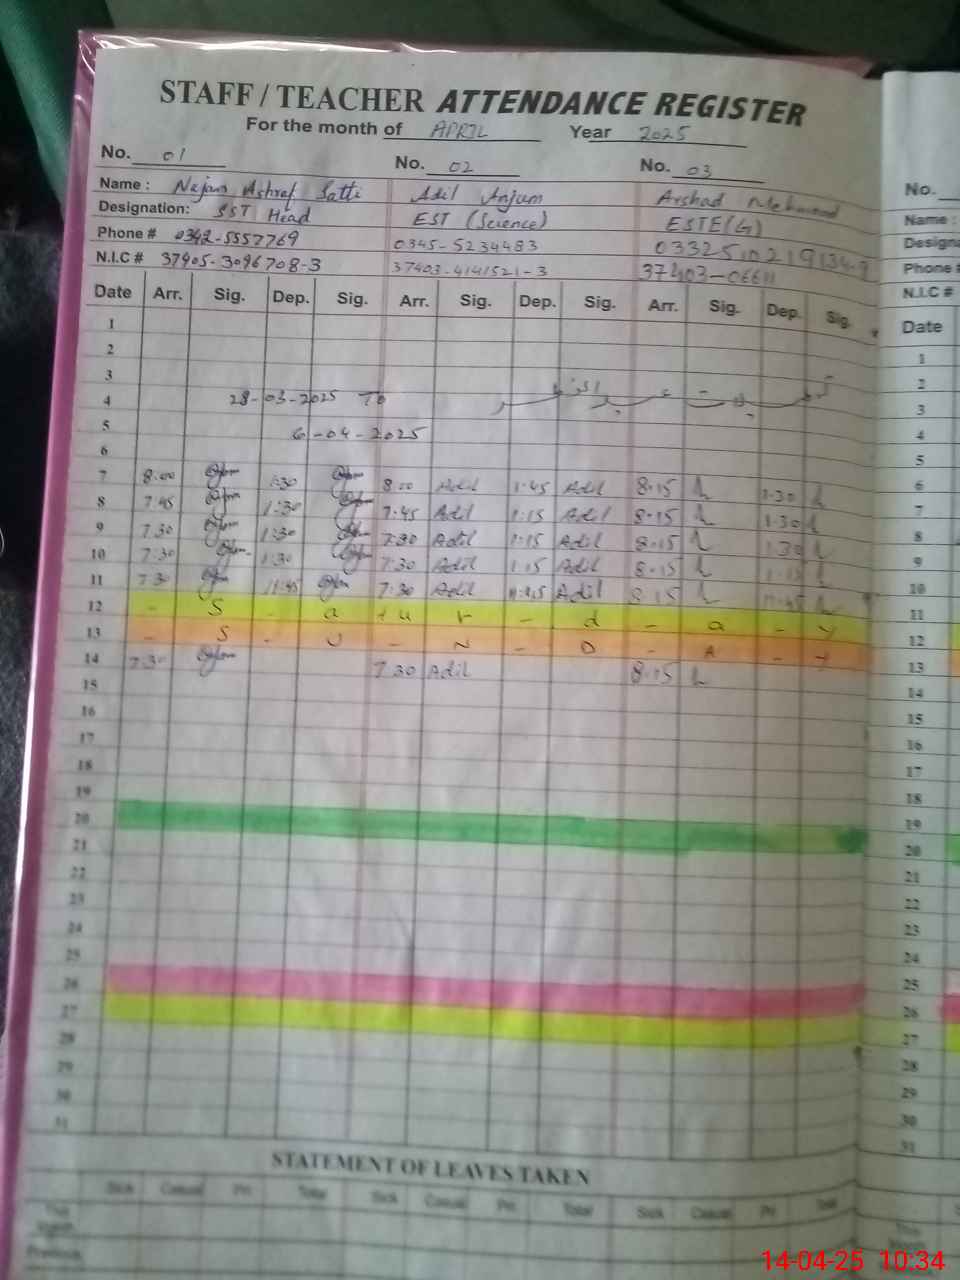 STAFF / TEACHER ATTENDANCE REGISTER
For the month of APRIL Year 2025
No. 01 No. 02 No. 03 No.
Name : Najam Ashraf Satti Adil Anjum Arshad Mehmood Name :
Designation: SST Head EST (Science) ESTE(G)
Phone # 0342-5557769 0345-5234483 Phone #
N.I.C # 37405-3096708-3 37403-4141521-3 N.I.C #
Date Arr. Sig. Dep. Sig. Arr. Sig. Dep. Sig. Arr. Sig. Dep. Sig. Date
1 1
2 2
3 3
4 28-03-2025 To عید الفطر 4
5 6-04-2025 5
6 6
7 8:00 1:30 8:00 Adil 1:45 Adil 8:15 1:30 7
8 7:45 1:30 7:45 Adil 1:15 Adil 8:15 1:30 8
9 7:30 1:30 7:30 Adil 1:15 Adil 8:15 1:30 9
10 7:30 1:30 7:30 Adil 1:15 Adil 8:15 1:15 10
11 7:30 11:45 7:30 Adil 11:45 Adil 8:15 11:45 11
12 - S - a t u r - d - a - y 12
13 - S - U - N - D - A - Y 13
14 7:30 7:30 Adil 8:15 14
15 15
16 16
17 17
18 18
19 19
20 20
21 21
22 22
23 23
24 24
25 25
26 26
27 27
28 28
29 29
30 30
31 31
STATEMENT OF LEAVES TAKEN
Sick Casual Pri Total Sick Casual Pri Total Sick Casual Pri Total
This Month This
Previous
14-04-25 10:34